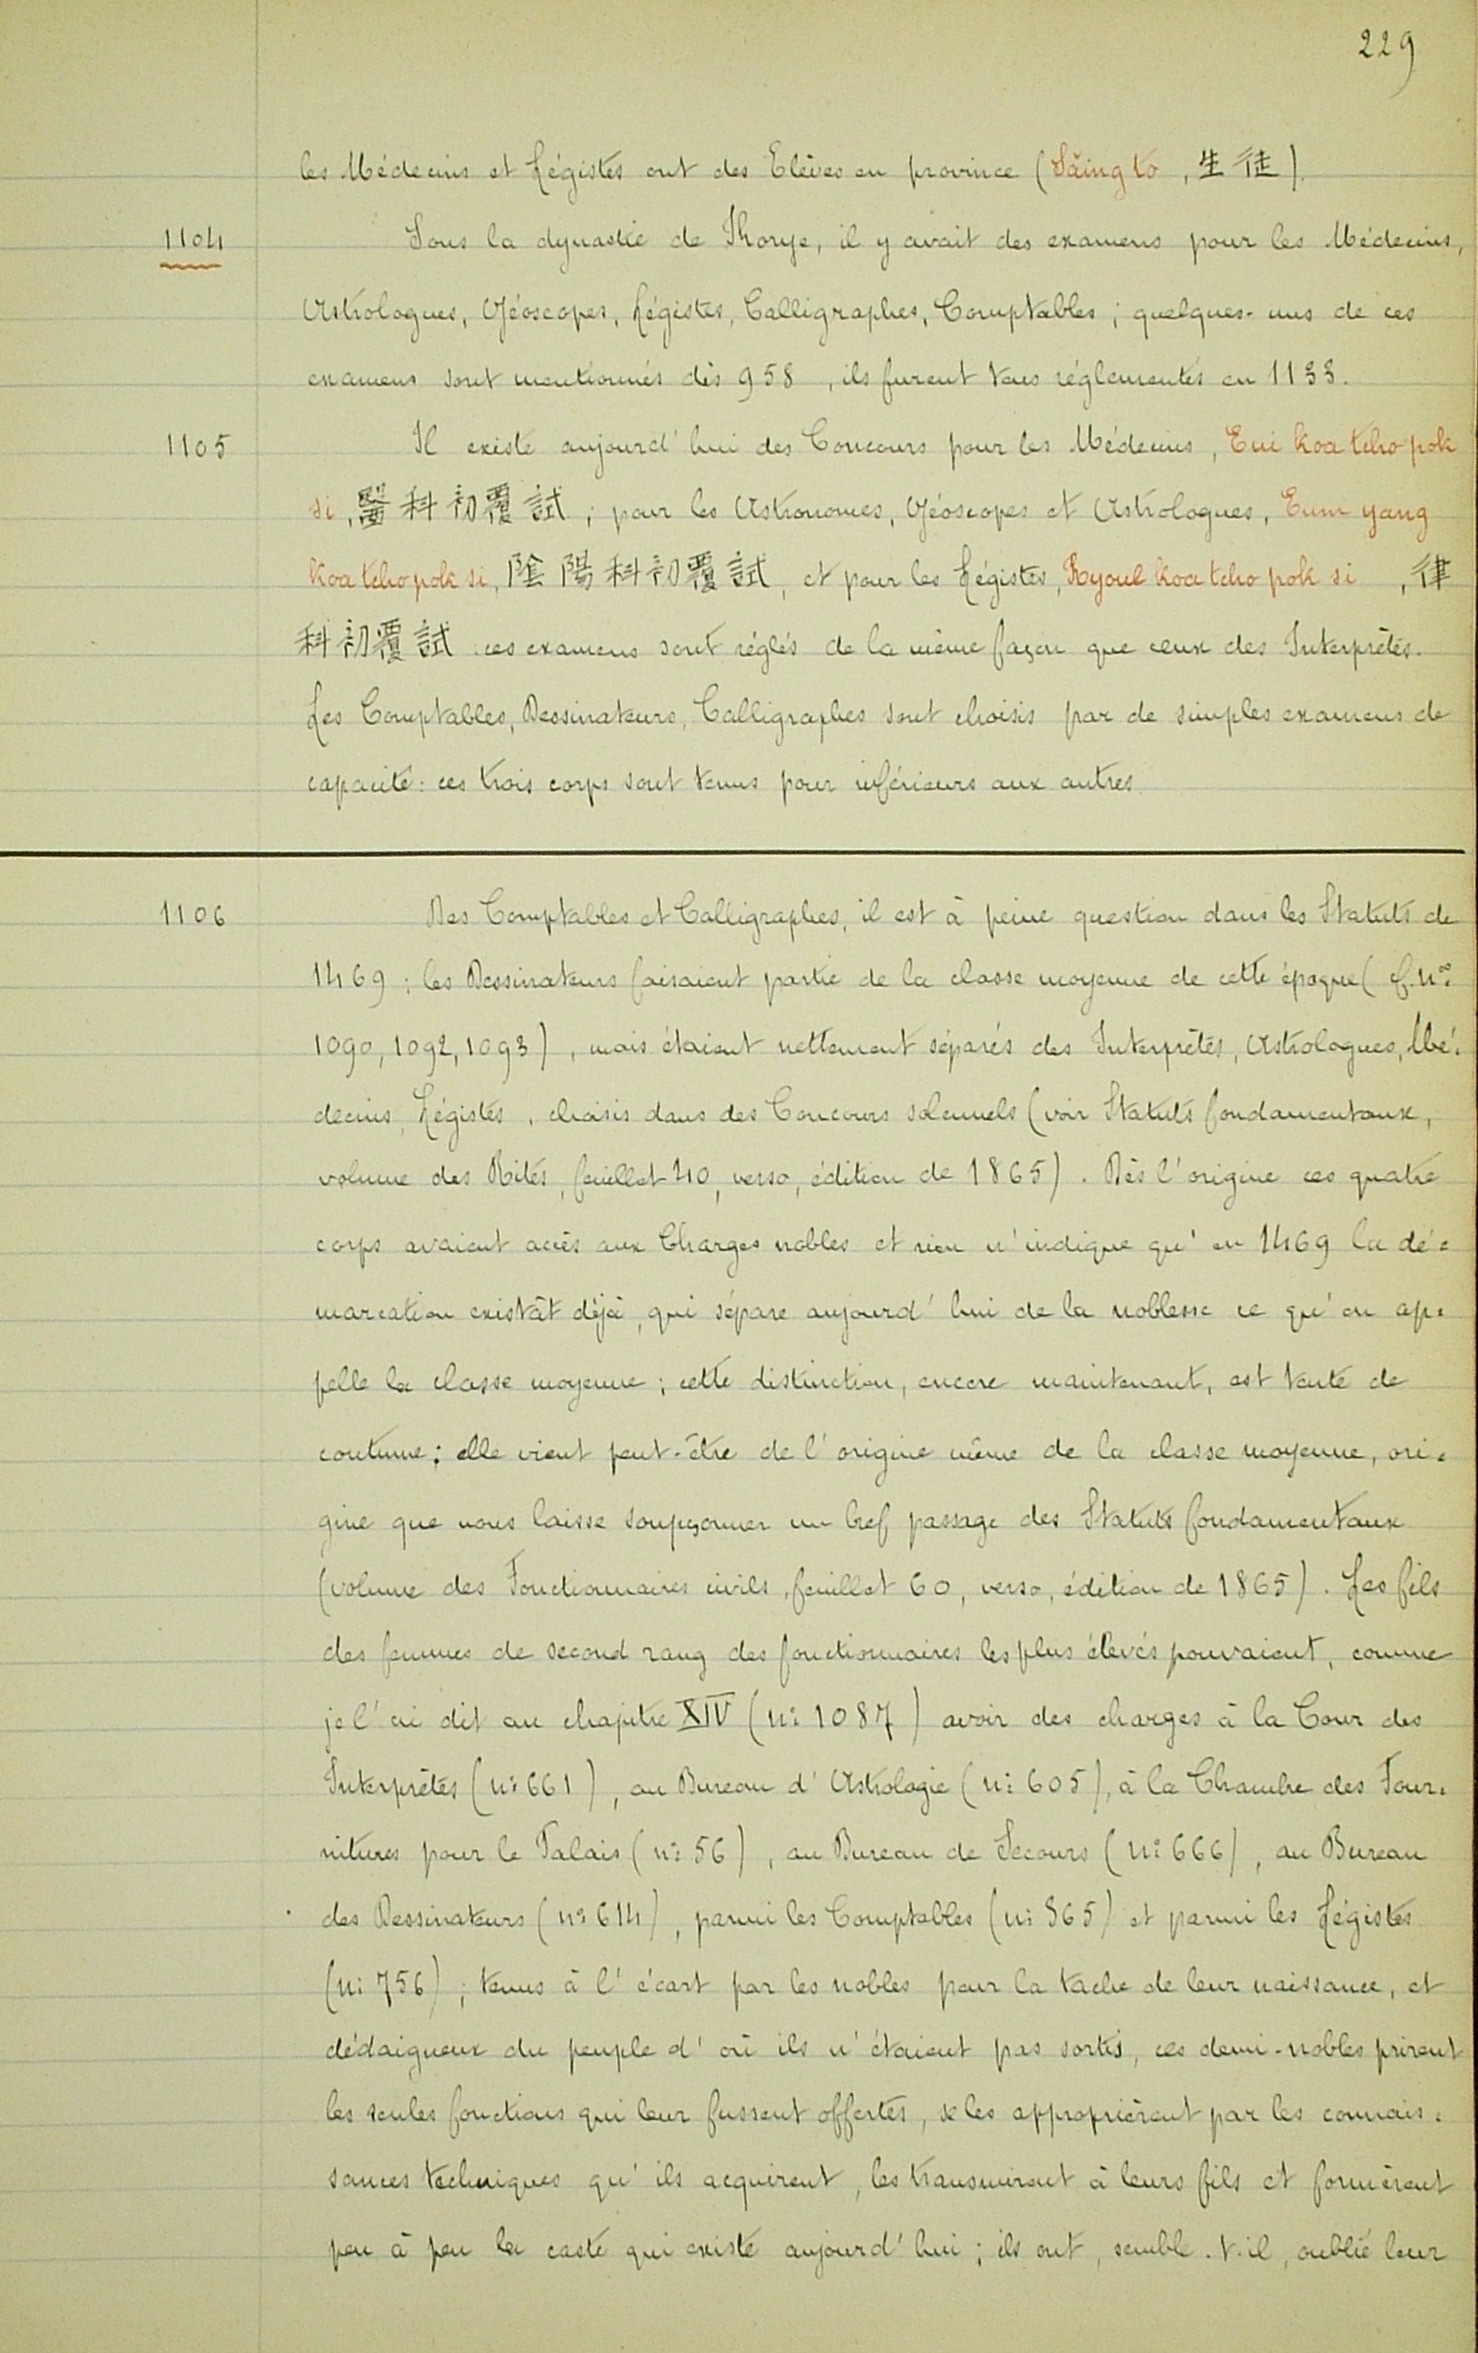 229
les Médecins et Légistes ont des Elèves en province (Săing to, 生徒).
1104 Sous la dynastie de Korye, il y avait des examens pour les Médecins,
Astrologues, Géoscopes, Légistes, Calligraphes, Comptables ; quelques-uns de ces
examens sont mentionnés dès 958, ils furent tous réglementés en 1133.
1105 Il existe aujourd'hui des Concours pour les Médecins, Eui koa tcho pok
si, 醫科初覆試 ; pour les Astronomes, Géoscopes et Astrologues, Eum yang
koa tcho pok si, 陰陽科初覆試, et pour les Légistes, Ryoul koa tcho pok si, 律
科初覆試 : ces examens sont réglés de la même façon que ceux des Interprètes.
Les Comptables, Dessinateurs, Calligraphes sont choisis par de simples examens de
capacité : ces trois corps sont tenus pour inférieurs aux autres.
1106 Des Comptables et Calligraphes, il est à peine question dans les Statuts de
1469 ; les Dessinateurs faisaient partie de la classe moyenne de cette époque (cf. nos
1090, 1092, 1093), mais étaient nettement séparés des Interprètes, Astrologues, Mé-
decins, Légistes, choisis dans des Concours solennels (voir Statuts fondamentaux,
volume des Rites, feuillet 40, verso, édition de 1865). Dès l'origine ces quatre
corps avaient accès aux Charges nobles et rien n'indique qu'en 1469 la dé=
marcation existât déjà, qui sépare aujourd'hui de la noblesse ce qu'on ap=
pelle la classe moyenne ; cette distinction, encore maintenant, est toute de
coutume ; elle vient peut-être de l'origine même de la classe moyenne, ori=
gine que nous laisse soupçonner un bref passage des Statuts fondamentaux
(volume des Fonctionnaires civils, feuillet 60, verso, édition de 1865). Les fils
des femmes de second rang des fonctionnaires les plus élevés pouvaient, comme
je l'ai dit au chapitre XIV (no 1087) avoir des charges à la Cour des
Interprètes (no 661), au Bureau d'Astrologie (no 605), à la Chambre des Four=
nitures pour le Palais (no 56), au Bureau de Secours (no 666), au Bureau
des Dessinateurs (no 614), parmi les Comptables (no 365) et parmi les Légistes
(no 756) ; tenus à l'écart par les nobles pour la tache de leur naissance, et
dédaigneux du peuple d'où ils n'étaient pas sortis, ces demi-nobles prirent
les seules fonctions qui leur fussent offertes, se les approprièrent par les connais=
sances techniques qu'ils acquirent, les transmirent à leurs fils et formèrent
peu à peu la caste qui existe aujourd'hui ; ils ont, semble-t-il, oublié leur